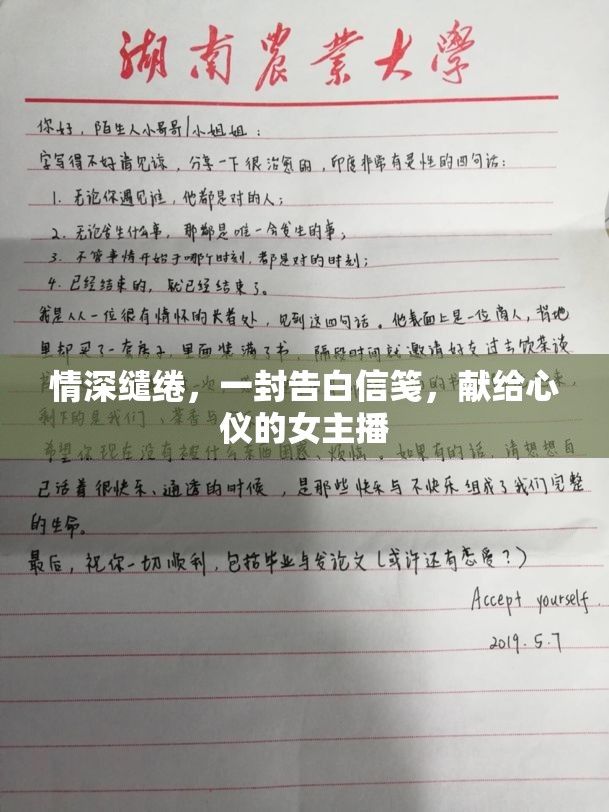 湖南農業大學
你好，陌生人小哥哥/小姐姐：
字写得不好请见谅，分享一下很治愈的，印度非常有灵性的四句话：
1. 无论你遇见谁，他都是对的人；
2. 无论发生什么事，那都是唯一会发生的事；
3. 不管事情开始于哪个时刻，都是对的时刻；
4. 已经结束的，就已经结束了。
我是从一位很有情怀的长者处，见到这四句话。他表面上是一位商人，背地
里却买了一套房子，里面装满了书，隔段时间就邀请好友过去饮茶谈
情深缱绻，一封告白信笺，献给心
仪的女主播
剩下的是我们、茶香与
希望你现在没有被什么东西困惑、烦恼。如果有的话，请想想自
己活着很快乐、通透的时候，是那些快乐与不快乐组成了我们完整
的生命。
最后，祝你一切顺利，包括毕业与发论文(或许还有恋爱？)
Accept yourself.
2019.5.7